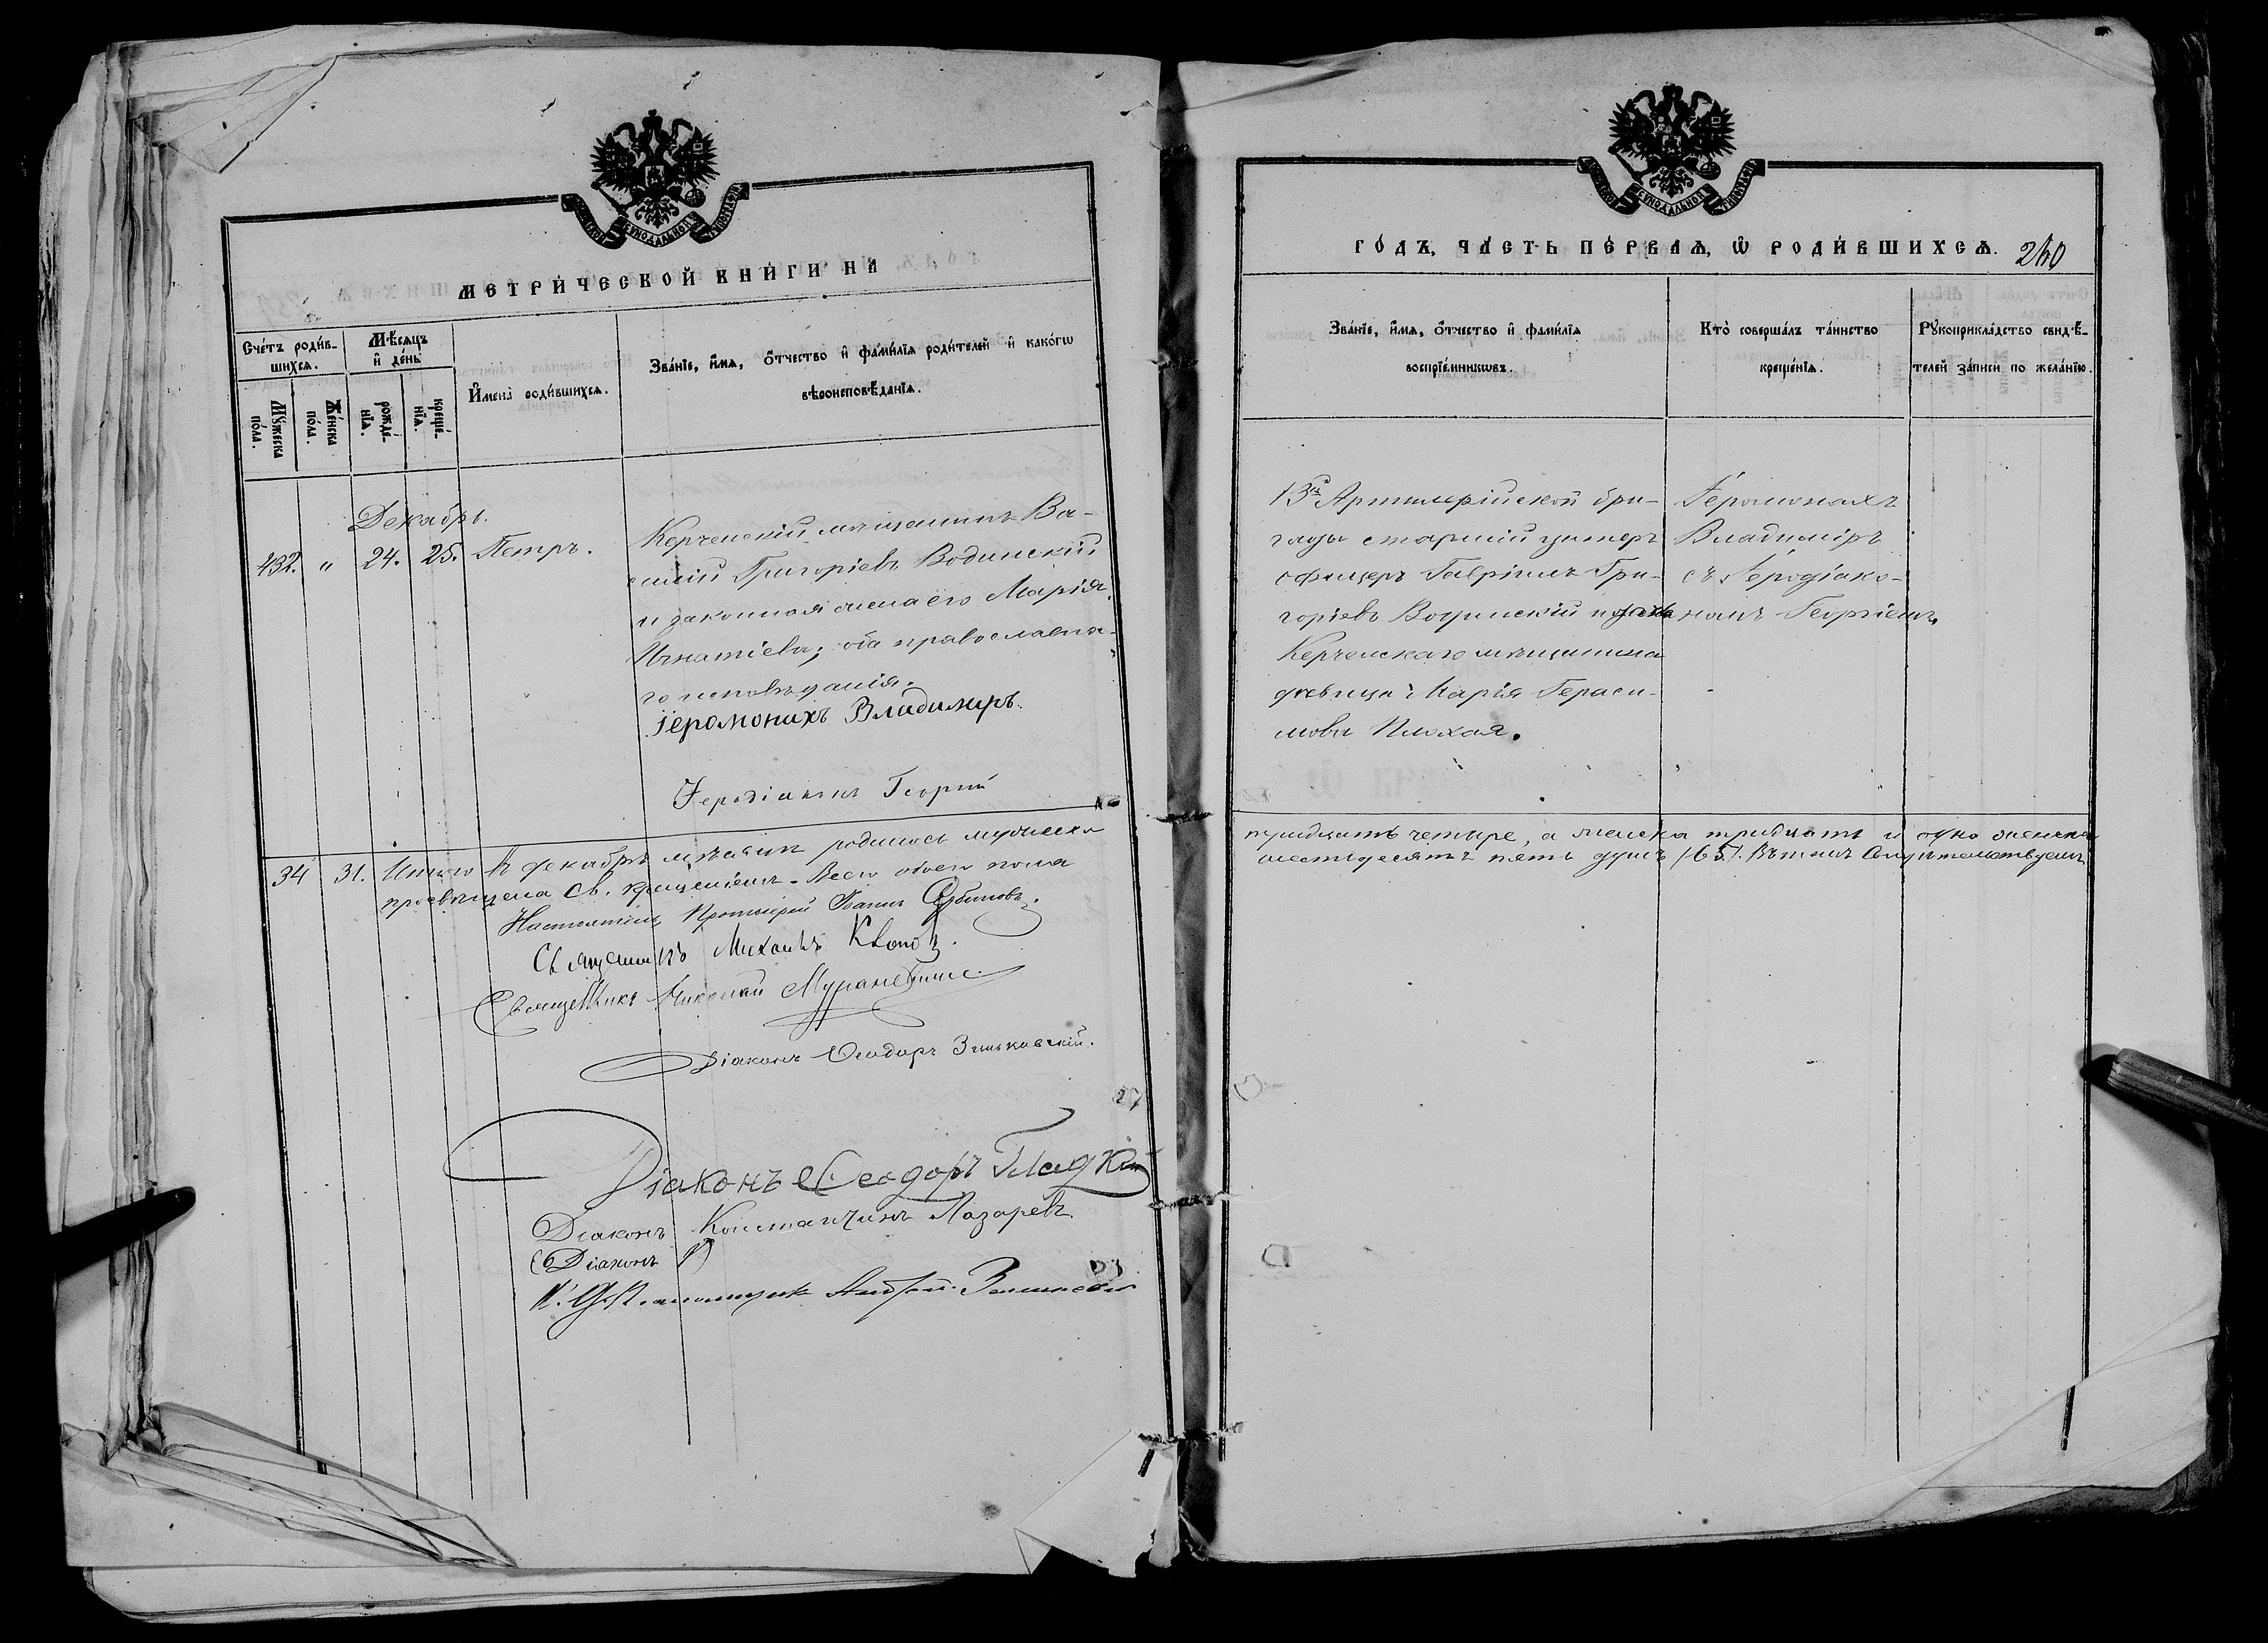 МЕТРИ́ЧЕСКОЙ КНИ́ГИ НА
Сче́тъ роди́в-
шихсѧ.
Мѣ́сѧцъ
и҆ де́нь
Мꙋ́жеска
по́ла.
Же́нска
по́ла.
рожде́-
нїѧ.
креще́-
нїѧ.
И҆мена̀ роди́вшихсѧ.
Зва́нїе, и҆́мѧ, ѻ҆́тчество и҆ фами́лїѧ роди́телей и҆ како́гѡ
вѣроисповѣ́данїѧ.
Декабрь.
432. " 24. 25. Петръ.
Керченскій мѣщанинъ Ва-
силій Григоріевъ Водинскій
и законная жена его Марія
Игнатіева; оба православна-
го исповѣданія.
Іеромонахъ Владимиръ.
Іеродіаконъ Георгій
34 31. Итого въ декабрѣ мѣсяцѣ родилось мужеска
просвѣщена Св. крещеніемъ. Всего обоего пола
Настоятель Протоіерей Іоаннъ
Священникъ Михаилъ
Священникъ Николай
Діаконъ Ѳеодоръ Зиньковскій.
Діаконъ Ѳеодоръ Гладкій
Діаконъ Константинъ Лазаревъ.
Діаконъ
ГО́ДЪ, ЧА́СТЬ ПЕ́РВАѦ, Ѡ҆ РОДИ́ВШИХСѦ. 260
Зва́нїе, и҆́мѧ, ѻ҆́тчество и҆ фами́лїѧ
воспрїе́мникѡвъ.
Кто̀ соверша́лъ та́инство
креще́нїѧ.
Рꙋкоприкла́дство свидѣ́-
телей за́писи по жела́нїю.
13й Артиллерійской бри-
гады старшій унтеръ
офицеръ Гавріилъ Гри-
горіевъ Водинскій и дочь
Керченскаго мѣщанина
дѣвица Марія Гераси-
мова Плохая.
Іеромонахъ
Владиміръ
съ Іеродіако-
номъ Георгіемъ.
тридцать четыре, а женска тридцать и одно
шестьдесятъ пять душъ /65/. Въ томъ свидѣтельствуемъ